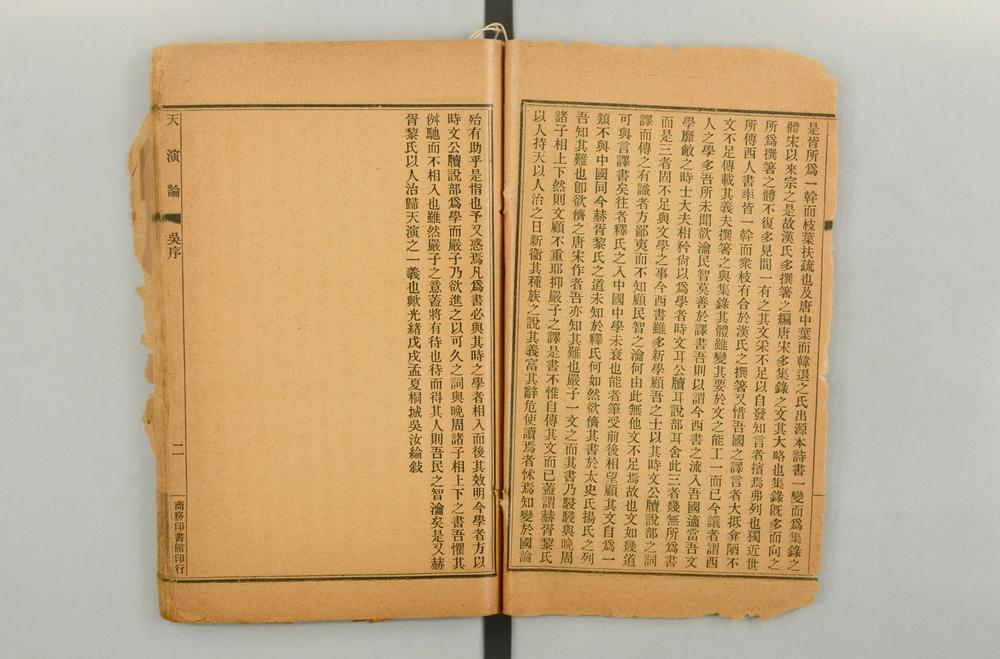 是皆所爲一幹而枝葉扶疏也及唐中葉而韓退之氏出源本詩書一變而爲集錄之
體宋以來宗之是故漢氏多撰箸之編唐宋多集錄之文其大略也集錄旣多而向之
所爲撰箸之體不復多見間一有之其文采不足以自發知言者擯焉弗列也獨近世
所傳西人書率皆一幹而衆枝有合於漢氏之撰箸又惜吾國之譯言者大抵弇陋不
文不足傳載其義夫撰箸之與集錄其體雖變其要於文之能工一而已今議者謂西
人之學多吾所未聞欲瀹民智莫善於譯書吾則以謂今西書之流入吾國適當吾文
學靡敝之時士大夫相矜尙以爲學者時文耳公牘耳說部耳舍此三者幾無所爲書
而是三者固不足與文學之事今西書雖多新學顧吾之士以其時文公牘說部之詞
譯而傳之有識者方鄙夷而不知顧民智之瀹何由此無他文不足焉故也文如幾道
可與言譯書矣往者釋氏之入中國中學未衰也能者筆受前後相望顧其文自爲一
類不與中國同今赫胥黎氏之道未知於釋氏何如然欲儕其書於太史氏揚氏之列
吾知其難也卽欲儕之唐宋作者吾亦知其難也嚴子一文之而其書乃駸駸與晚周
諸子相上下然則文顧不重耶抑嚴子之譯是書不惟自傳其文而已蓋謂赫胥黎氏
以人持天以人治之日新衞其種族之說其義富其辭危使讀焉者怵焉知變於國論
殆有助乎是指也予又惑焉凡爲書必與其時之學者相入而後其效明今學者方以
時文公牘說部爲學而嚴子乃欲進之以可久之詞與晚周諸子相上下之書吾懼其
舛馳而不相入也雖然嚴子之意蓋將有待也待而得其人則吾民之智瀹矣是又赫
胥黎氏以人治歸天演之一義也歟光緖戊戌孟夏桐城吳汝綸敍
天演論 吳序 二 商務印書館印行